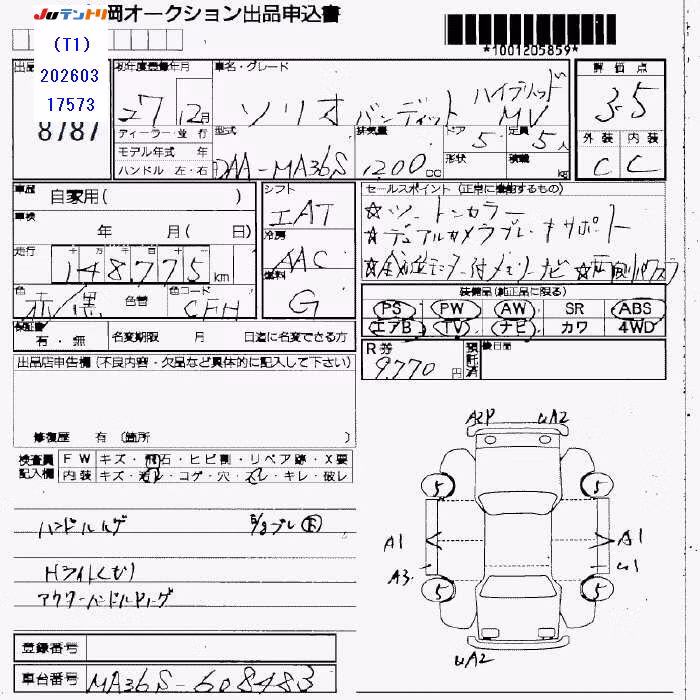 JUテントリ 岡オークション出品申込書
(T1)
202603
17573
8787
*1001205859*
出品
初年度登録年月
27 12月
ディーラー・並 行
モデル年式 年
ハンドル 左・右
車名・グレード
ソリオ バンディット ハイブリッド MV
型式
DAA-MA36S
排気量
1200 cc
ドア
5
形状
定員
5人
積載
kg
評価点
3.5
外装 内装
C C
車歴 自家用( )
車検 年 月( 日)
走行
十 万 千 百 十 一
148775 km
色
赤/黒
色替
色コード
CFH
シフト
IAT
冷房
AAC
燃料
G
セールスポイント (正常に機能するもの)
☆ツートンカラー
☆デュアルカメラブレーキサポート
☆全方位モニター付メモリーナビ ☆両側パワスラ
保証書
有・無
名変期限 月 日迄に名変できる方
装備品(純正品に限る)
PS PW AW SR ABS
エアB TV ナビ カワ 4WD
R券
9,770 円
預託済
後日品
出品店申告欄 (不良内容・欠品など具体的に記入して下さい)
修復歴 有 〔箇所 〕
検査員記入欄
FW キズ・飛石・ヒビ割・リペア跡・X要
内装 キズ・汚レ・コゲ・穴・スレ・キレ・破レ
ハンドルハゲ
Hライトくもり
アウターハンドル
A2P UA2
5 5
A1 A1
A3 U1
5 5
UA2
登録番号
車台番号 MA36S-608483